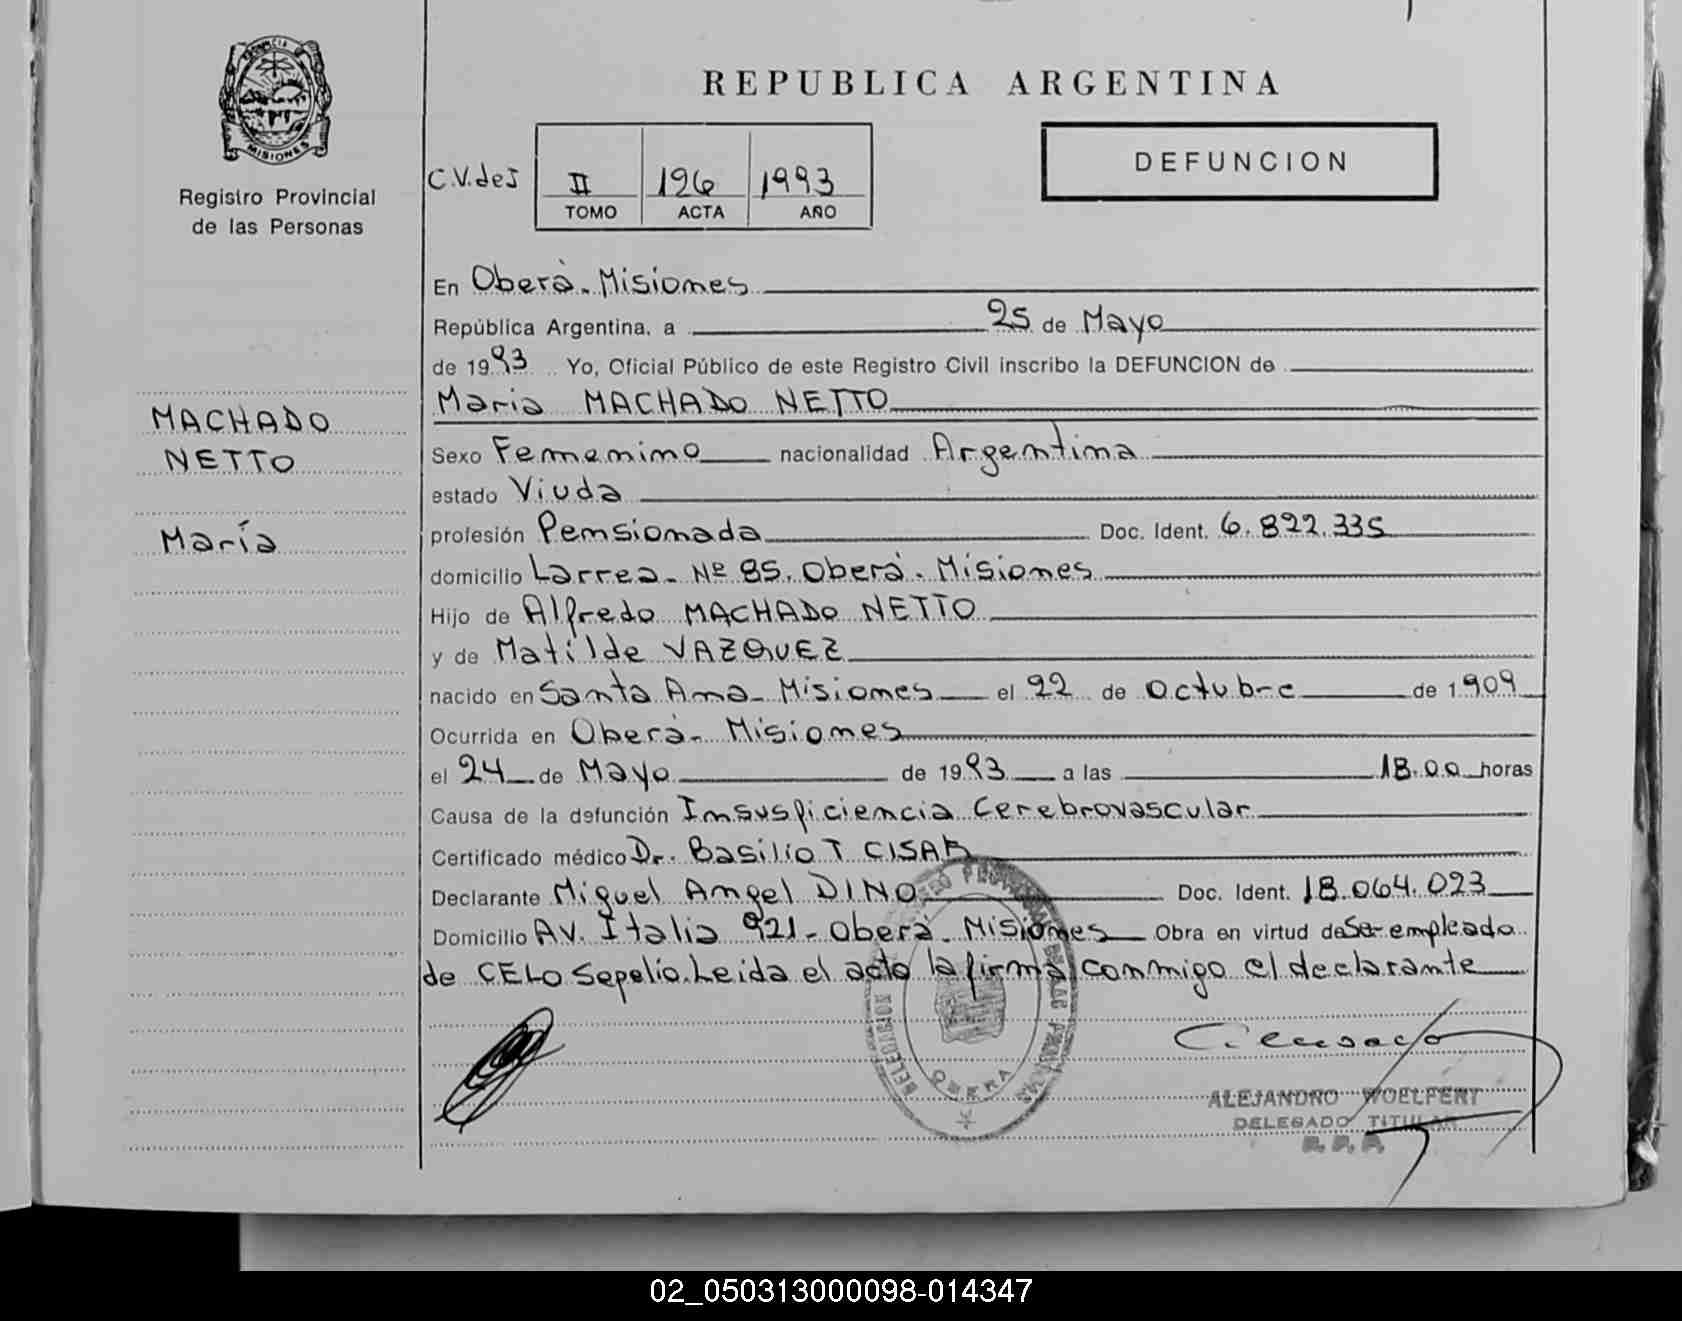 PROVINCIA DE
MISIONES
Registro Provincial
de las Personas
REPUBLICA ARGENTINA
C.V.deJ
II 126 1993
TOMO ACTA AÑO
DEFUNCION
En Oberà. Misiones
República Argentina, a 25 de Mayo
de 1993 Yo, Oficial Público de este Registro Civil inscribo la DEFUNCION de
Maria MACHADO NETTO
MACHADO
NETTO
María
Sexo Femenino nacionalidad Argentina
estado Viuda
profesión Pensionada Doc. Ident. 6.822.335
domicilio Larrea - Nº 85. Oberá. Misiones
Hijo de Alfredo MACHADO NETTO
y de Matilde VAZQUEZ
nacido en Santa Ana - Misiones el 22 de Octubre de 1909
Ocurrida en Oberá - Misiones
el 24 de Mayo de 1993 a las 18.00 horas
Causa de la defunción Insusficiencia Cerebrovascular
Certificado médico Dr. Basilio T CISAR
Declarante Miguel Angel DINO Doc. Ident. 18.064.023
Domicilio AV. Italia 921 - Oberá - Misiones Obra en virtud de Ser empleado
de CELO Sepelio. Leida el acta la firma conmigo el declarante
OBERA
ALEJANDRO WOELFERT
DELEGADO TITULAR
R. P. P.
02_050313000098-014347